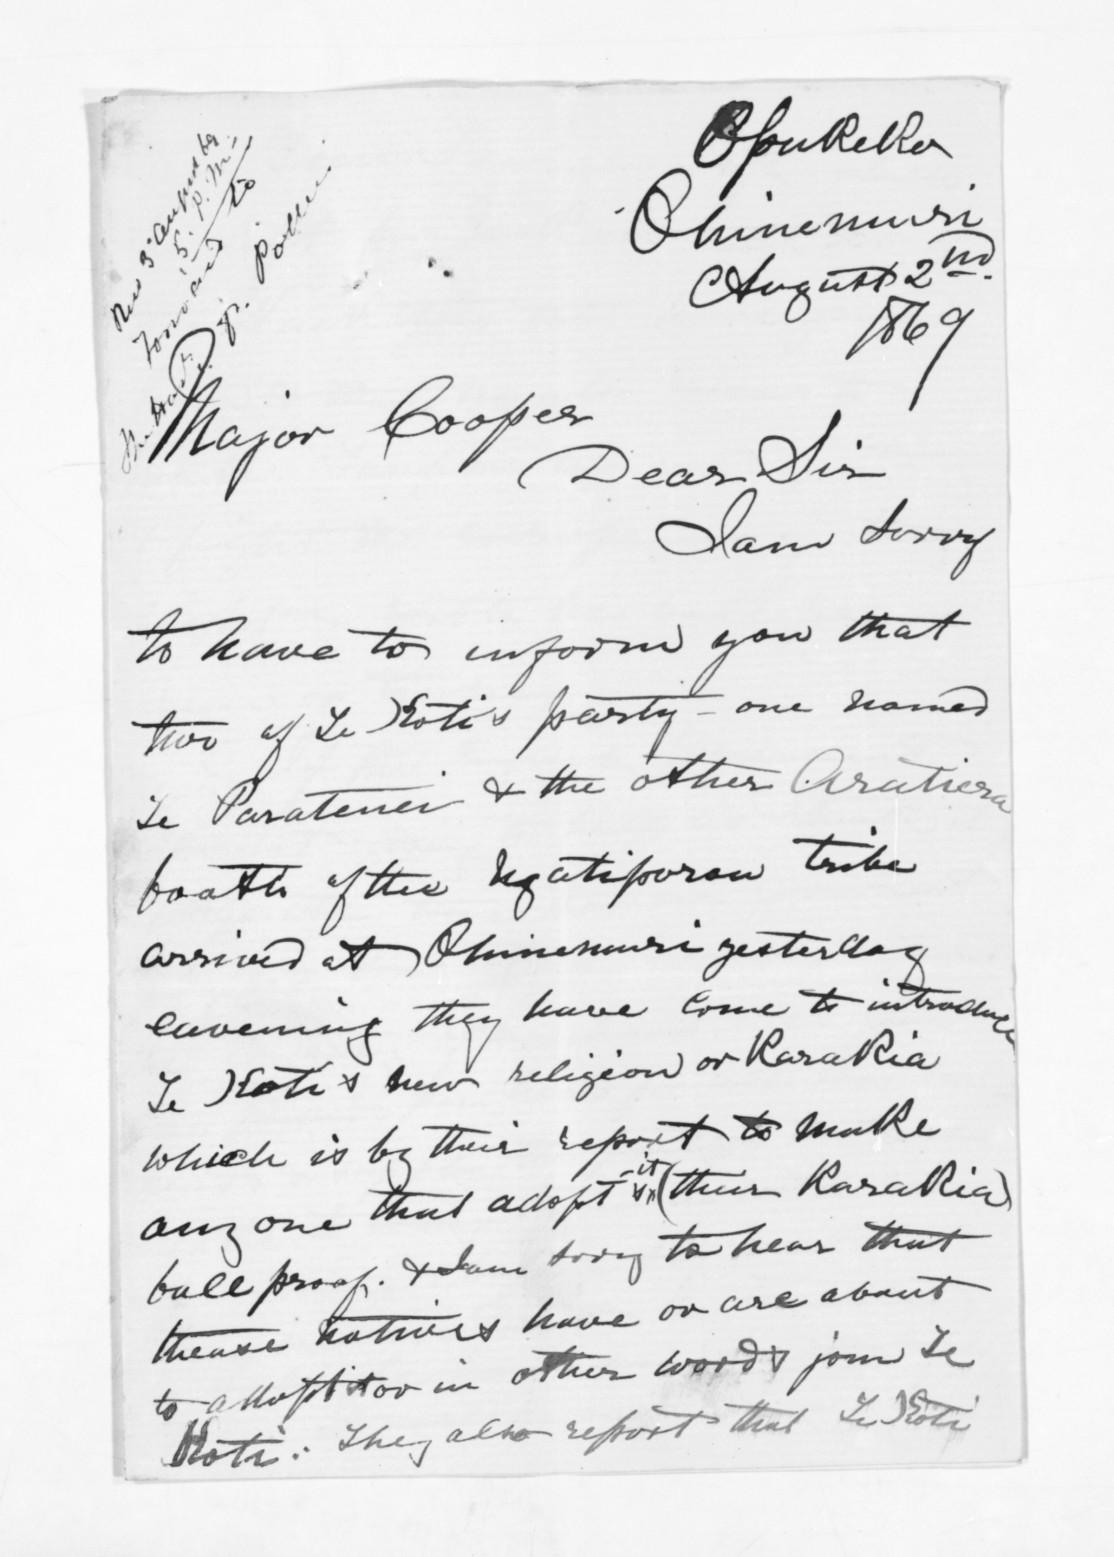 Opukeko
Ohinemuri
August 2nd
1869
Recd 3d August by
5. P.M.
to
Pollen
Major Cooper
Dear Sir
I am sorry
to have to inform you that
two of Te Koti's party - one named
Te Paratenei & the other Aratiera
boath of the Ngatiporou tribe
arrived at Ohinemuri yesterday
eavening they have come to introduce
Te Koti's new religion or KaraKia
which is by their report to make
any one that adopt it (their KaraKia)
ball proof. & I am sorry to hear that
thease natives have or are about
to addopt it or in other words join Te
Koti. They also report that Te Koti